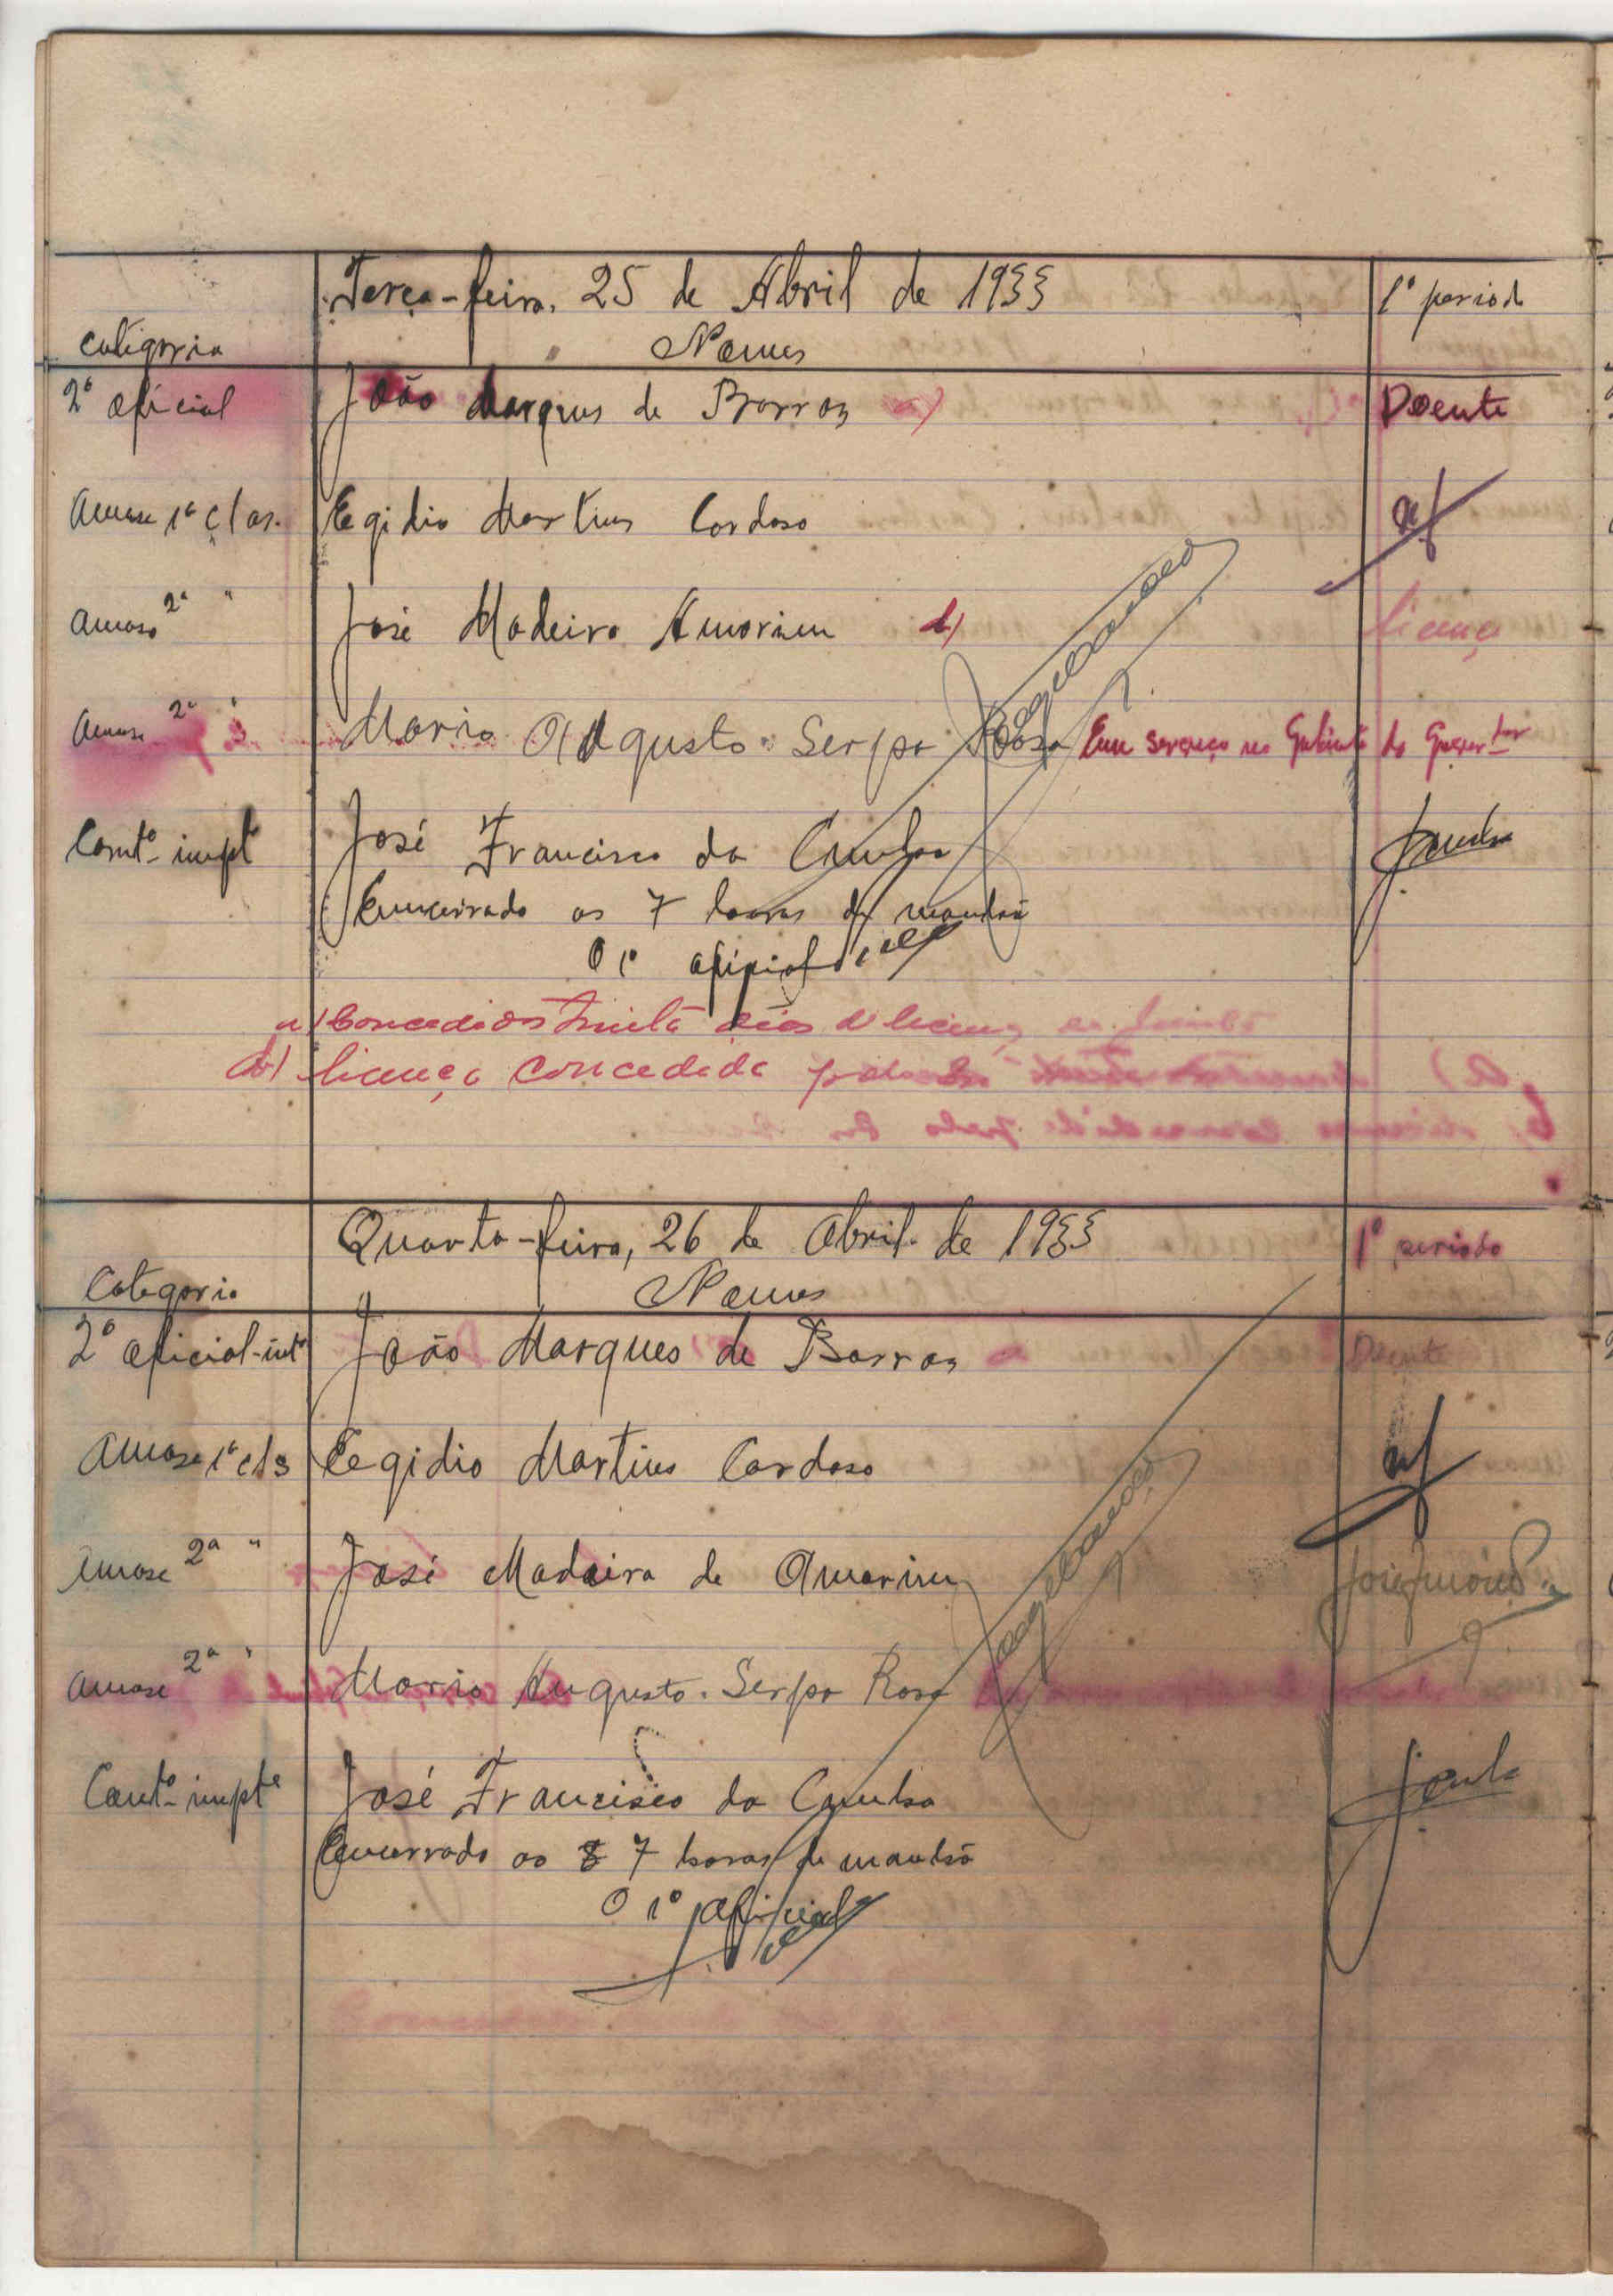 Terça-feira, 25 de Abril de 1933
1º periodo
Categoria
Nomes
2º oficial João Marques de Barros a) Doente
Amase 1ª clas. Egidio Martins Cardoso
Amase 2ª " José Madeira Amorim b) licença
Amase 2ª " Mario Augusto Serpa Rosa Em serviço no Gabinete do Govern_dor
Contº impte José Francisco da Cunha
Encerrado as 7 horas da manhã
O 1º oficial
a) Concedidos trinta dias de licença
b) licença concedida
Quarta-feira, 26 de Abril de 1933
1º periodo
Categoria
Nomes
2º oficial-intº João Marques de Barros a Doente
Amase 1ª cls Egidio Martins Cardoso
Amase 2ª " José Madeira de Amorim
Amase 2ª " Mario Augusto Serpa Rosa
Contº impte José Francisco da Cunha
Encerrado as 7 horas da manhã
O 1º oficial